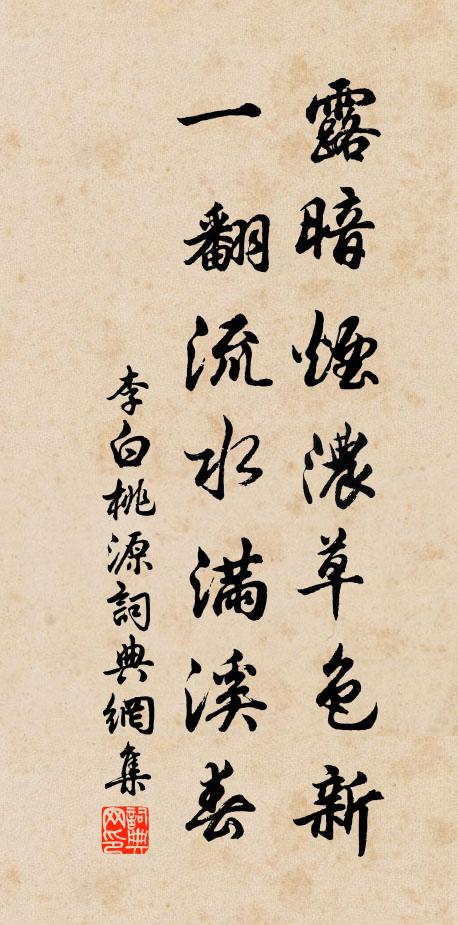 露暗煙濃草色新
一翻流水滿溪春
李白桃源詞典網集
詞典
网印